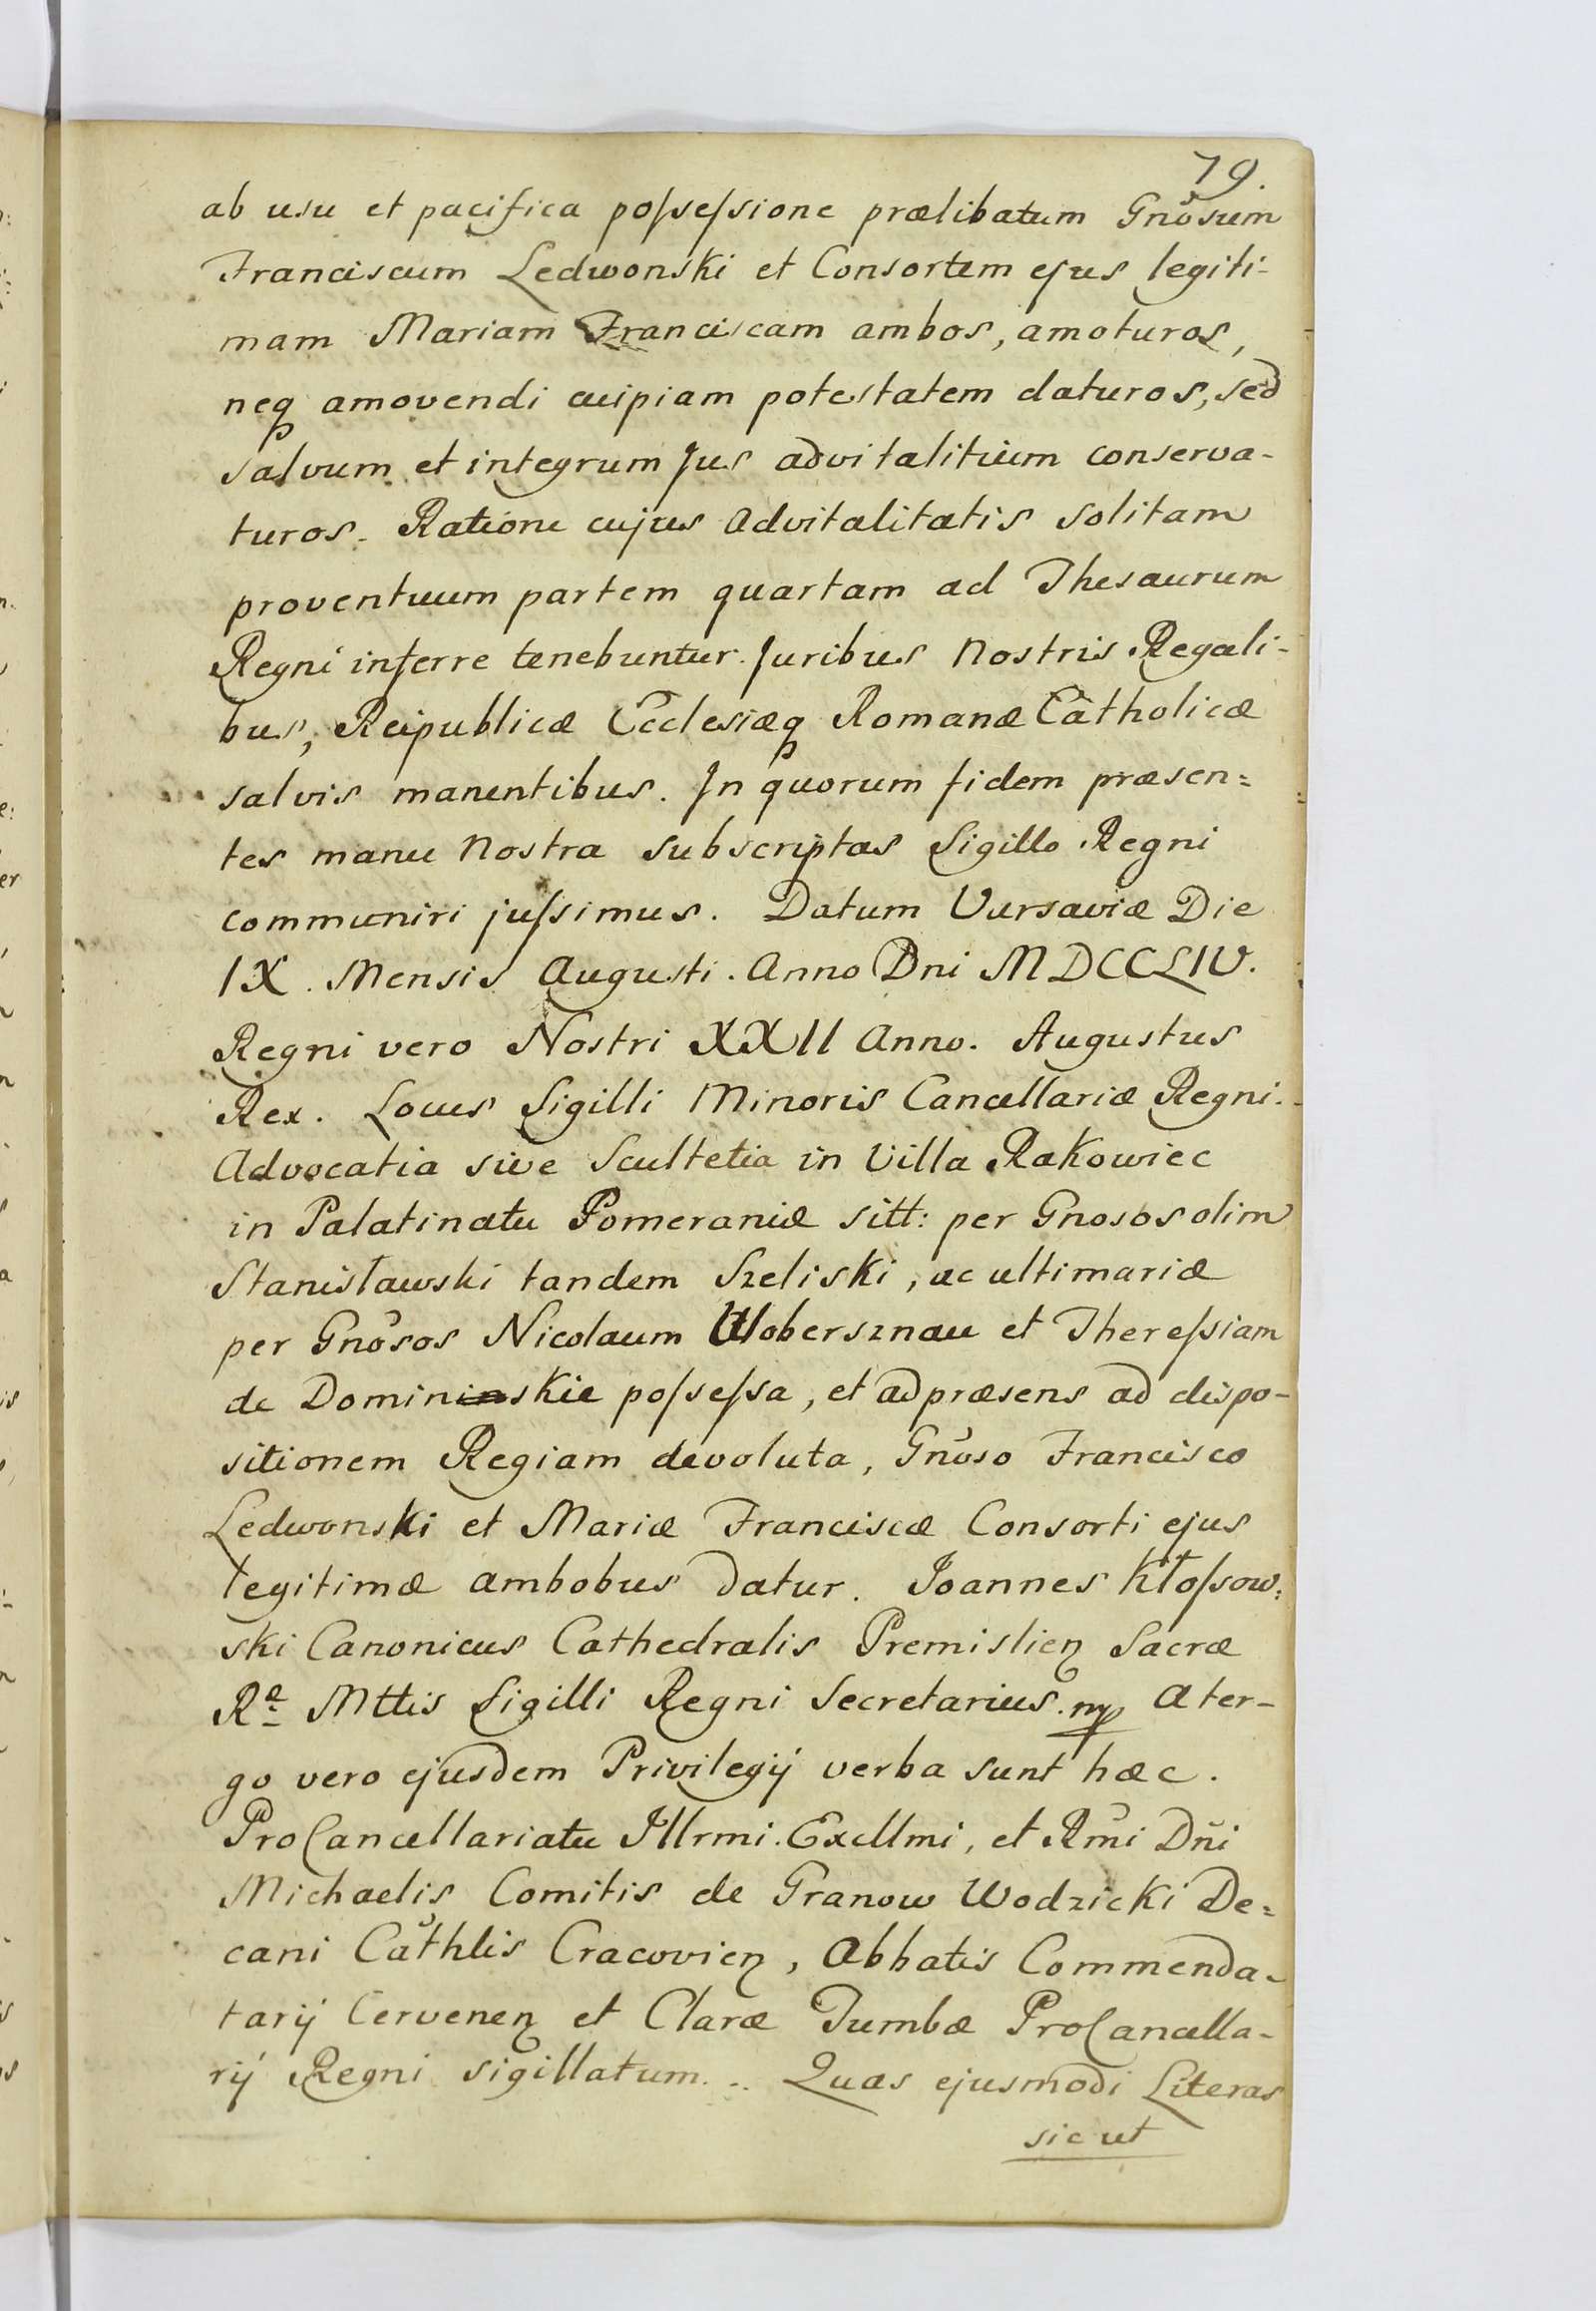 79.
ab usu et pacifica poſseſsione prælibatum Gnõsum
Franciscum Ledwonski et Consortem ejus legiti-
mam Mariam Franciscam ambos, amoturos,
neq amovendi cuipiam potestatem daturos, sed
salvum et integrum Jus advitalitium conserva-
turos. Ratione cujus Advitalitatis solitam
proventuum partem quartam ad Thesaurum
Regni inferre tenebuntur. Juribus Nostris Regali-
bus, Reipublicæ Ecclesiæq Romanæ Catholicæ
salvis manentibus. In quorum fidem præsen=
tes manu Nostra subscriptas Sigillo Regni
communiri juſsimus. Datum Varsaviæ Die
IX. Mensis Augusti. Anno Dni MDCCLIV.
Regni vero Nostri XXII Anno. Augustus
Rex. Locus Sigilli Minoris Cancellariæ Regni.
Advocatia sive Scultetia in Villa Rakowiec
in Palatinatu Pomeraniæ sitt: per Gnosos olim
Stanisławski tandem Szeliski, ac ultimariæ
per Gnõsos Nicolaum Wobersznau et Thereſsiam
de Domininskie poſseſsa, et ad præsens ad dispo-
sitionem Regiam devoluta, Gnõso Francisco
Ledwonski et Mariæ Franciscæ Consorti ejus
legitimæ ambobus datur. Joannes Kłoſsow=
ski Canonicus Cathedralis Premislien Sacræ
Ræ Mttis Sigilli Regni Secretarius. mp A ter-
go vero ejusdem Privilegij verba sunt hæc.
ProCancellariatu Illrmi. Excllmi, et Rm̃i Dñi
Michaelis Comitis de Granow Wodzicki De=
cani Cãthlis Cracovien, Abbatis Commenda-
tarij Cervenen et Claræ Tumbæ ProCancella-
rij Regni sigillatum. .. Quas ejusmodi Literas
sicut